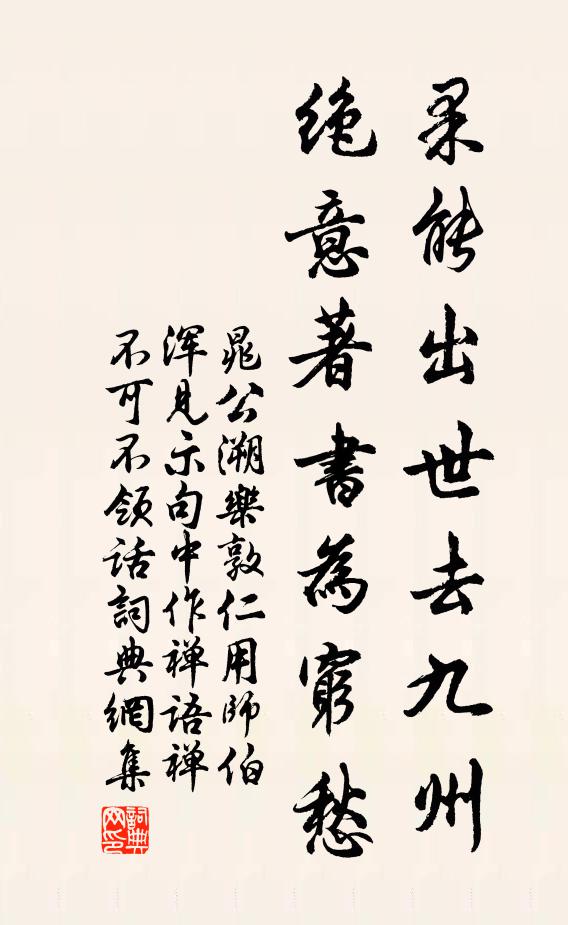 果能出世去九州
絶意著書為窮愁
晁公溯樂敦仁用師伯
渾見示句中作禅語禅
不可不領話詞典網集
詞典网印